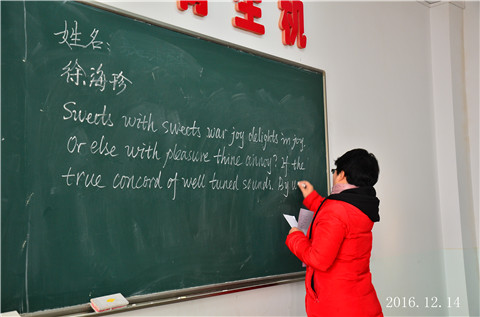 生机
姓名:
徐海珍
Sweets with sweets war joy delights in joy.
Or else with pleasure thine annoy? If the
true concord of well tuned sounds. By u
2016.12.14